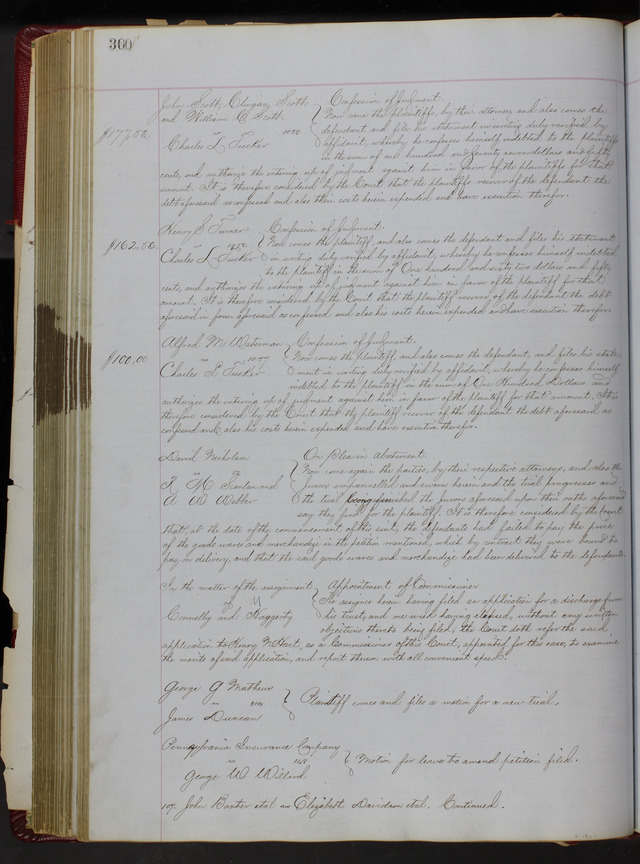 300
John Scott, Clingan Scott Confession of Judgment.
and William C Scott Now comes the plaintiffs, by their attorney, and also comes the
$177,50 vs 1050 defendant and files his statement in writing duly verified by
Charles L Tucker affidavit, whereby he confesses himself indebted to the plaintiffs
in the sum of one hundred and seventy seven dollars and fifty
cents, and authorize the entering up of judgment against him in favor of the plaintiffs for that
amount. It is therefore considered by the Court that the plaintiffs recover of the defendant the
debt aforesaid as confessed and also their costs herein expended and have execution therefor.
Henry S Turner Confession of Judgment.
$162,50 vs Now comes the plaintiff, and also comes the defendant and files his statement
Charles L Tucker in writing duly verified by affidavit, whereby he confesses himself indebted
to the plaintiff in the sum of One hundred and sixty two dollars and fifty
cents, and authorizes the entering up of judgment against him in favor of the plaintiff for that
amount. It is therefore considered by the Court that the plaintiff recover of the defendant the debt
aforesaid in form aforesaid as confessed and also his costs herein expended and have execution therefor.
Alfred M. Waterman Confession of Judgment.
$100,00 vs Now comes the plaintiff, and also comes the defendant, and files his state-
Charles L Tucker ment in writing duly verified by affidavit, whereby he confesses himself
indebted to the plaintiff in the sum of One Hundred Dollars and
authorizes the entering up of judgment against him in favor of the plaintiff for that amount. It is
therefore considered by the Court that the plaintiff recover of the defendant the debt aforesaid as
confessed and also his costs herein expended and have execution therefor.
David Nicholson On Plea in Abatement.
vs Now come again the parties, by their respective attorneys, and also the
H jurors empannelled and sworn herein and the trial progresses and
A W Webber the trial being finished the jurors aforesaid upon their oaths aforesaid
say they find for the plaintiff. It is therefore considered by the Court
that at the date of the commencement of this suit, the defendants had failed to pay the price
of the goods wares and merchandize in the petition mentioned which by contract they were bound to
pay on delivery, and that the said goods wares and merchandize had been delivered to the defendants.
In the matter of the assignment Appointment of Commissioner
of The assignee herein having filed an application for a discharge from
Connolly and Haggerty his trust, and one week having elapsed, without any written
objections thereto being filed, the Court doth refer the said
application to Henry N Hart, as a Commissioner of this Court, appointed for this case, to examine
the merits of said application, and report thereon with all convenient speed.
George G Mathews
vs Plaintiff comes and files a motion for a new trial.
James Duncan
Pennsylvania Insurance Company
vs 148 Motion for leave to amend petition filed.
George W Willard
107. John Baxter etal vs Elizabeth Davidson etal. Continued.